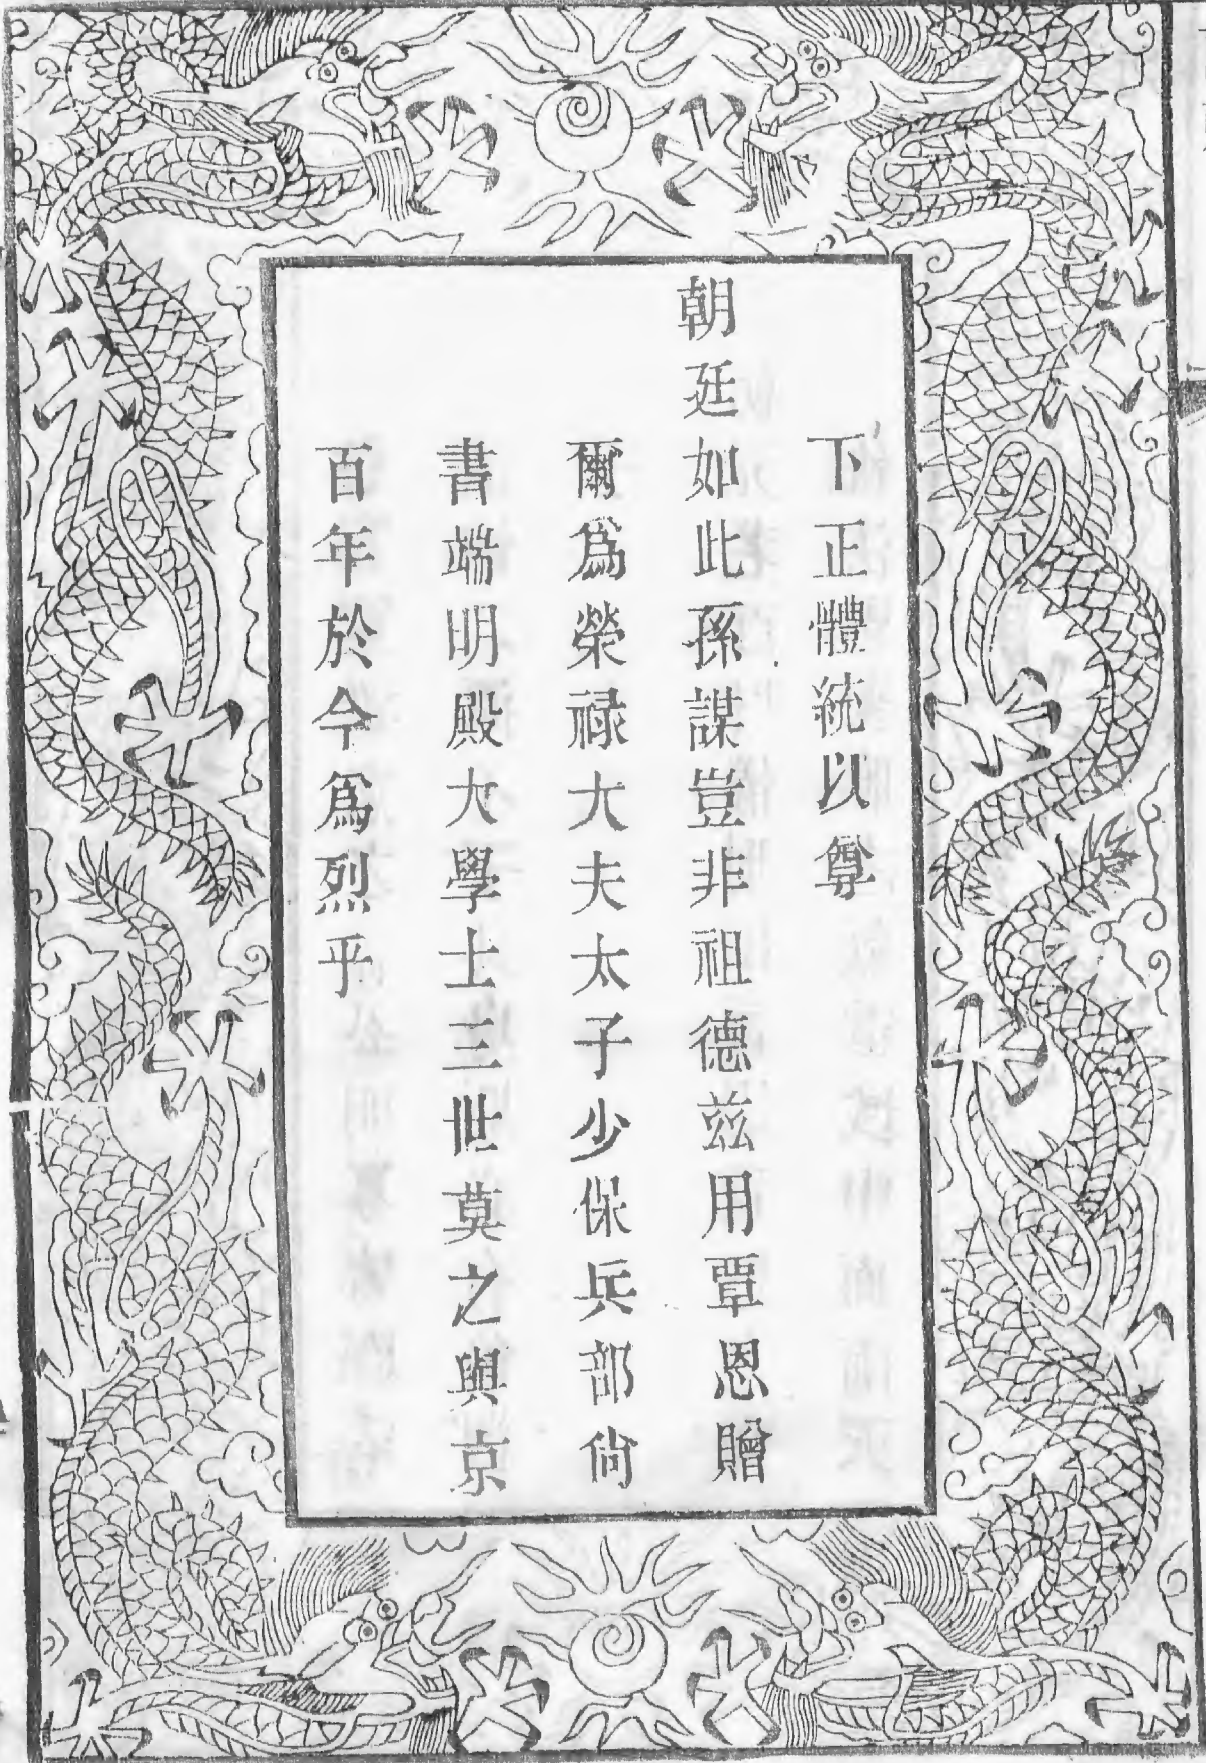 下正體統以尊
朝廷如此孫謀豈非祖德茲用覃恩贈
爾爲榮祿大夫太子少保兵部尙
書端明殿大學士三世莫之與京
百年於今爲烈乎